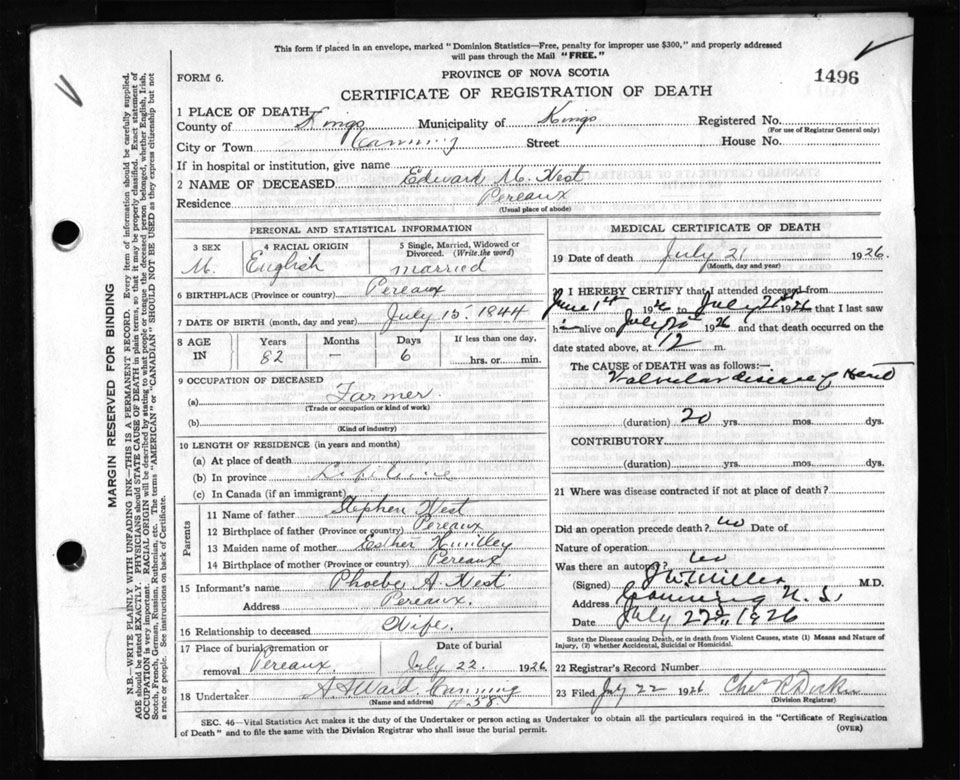 This form if placed in an envelope, marked "Dominion Statistics—Free, penalty for improper use $300," and properly addressed
will pass through the Mail "FREE."
FORM 6.
PROVINCE OF NOVA SCOTIA
1496
CERTIFICATE OF REGISTRATION OF DEATH
1 PLACE OF DEATH
County of Kings Municipality of Kings Registered No.
(For use of Registrar General only)
City or Town Canning Street House No.
If in hospital or institution, give name
2 NAME OF DECEASED Edward M. West
Residence Pereaux
(Usual place of abode)
PERSONAL AND STATISTICAL INFORMATION
3 SEX 4 RACIAL ORIGIN 5 Single, Married, Widowed or Divorced. (Write the word)
M. English married
6 BIRTHPLACE (Province or country) Pereaux
7 DATE OF BIRTH (month, day and year) July 15. 1844
8 AGE IN Years Months Days If less than one day,
82 — 6 hrs. or min.
9 OCCUPATION OF DECEASED
(a) Farmer
(Trade or occupation or kind of work)
(b)
(Kind of industry)
10 LENGTH OF RESIDENCE (in years and months)
(a) At place of death
(b) In province
(c) In Canada (if an immigrant)
Parents
11 Name of father Stephen West
12 Birthplace of father (Province or country) Pereaux
13 Maiden name of mother Esther
14 Birthplace of mother (Province or country) Pereaux
15 Informant's name Phoebe A. West
Address Pereaux.
16 Relationship to deceased Wife.
17 Place of burial, cremation or removal Pereaux Date of burial July 22. 1926
18 Undertaker Ward. Canning
(Name and address)
MEDICAL CERTIFICATE OF DEATH
19 Date of death July 21 1926.
(Month, day and year)
20 I HEREBY CERTIFY that I attended deceased from
June 1st 1926 to July 21st 1926 that I last saw
him alive on July 1926 and that death occurred on the
date stated above, at 12 m.
The CAUSE of DEATH was as follows:—
Valvular disease of Heart
(duration) 20 yrs. mos. dys.
CONTRIBUTORY
(duration) yrs. mos. dys.
21 Where was disease contracted if not at place of death?
Did an operation precede death? no Date of
Nature of operation
Was there an autopsy? no
(Signed) Miller M.D.
Address Canning N. S.
Date July 22nd, 1926
State the Disease causing Death, or in death from Violent Causes, state (1) Means and Nature of
Injury, (2) whether Accidental, Suicidal or Homicidal.
22 Registrar's Record Number
23 Filed July 22 1926 Chas R
(Division Registrar)
SEC. 46—Vital Statistics Act makes it the duty of the Undertaker or person acting as Undertaker to obtain all the particulars required in the "Certificate of Registration
of Death" and to file the same with the Division Registrar who shall issue the burial permit.
(OVER)
MARGIN RESERVED FOR BINDING
N.B.—WRITE PLAINLY WITH UNFADING INK—THIS IS A PERMANENT RECORD. Every item of information should be carefully supplied.
AGE should be stated EXACTLY. PHYSICIANS should STATE CAUSE OF DEATH in plain terms, so that it may be properly classified. Exact statement of
OCCUPATION is very important. RACIAL ORIGIN will be described by stating to what people or tongue the deceased person belonged, whether English, Irish,
Scotch, French, German, Russian, Ruthenian, etc. The terms "AMERICAN" or "CANADIAN" SHOULD NOT BE USED as they express citizenship but not
a race or people. See instructions on back of Certificate.